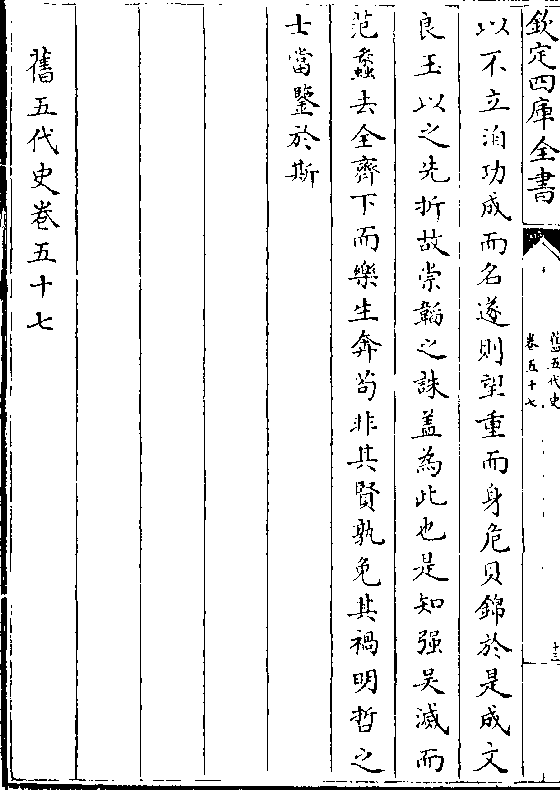 欽定四庫全書
舊五代史
卷五十七
十三
以不立洎功成而名遂則望重而身危貝錦於是成文
良玉以之先折故崇韜之誅蓋為此也是知强吴滅而
范蠡去全齊下而樂生奔苟非其賢孰免其禍明哲之
士當鑒於斯
舊五代史卷五十七